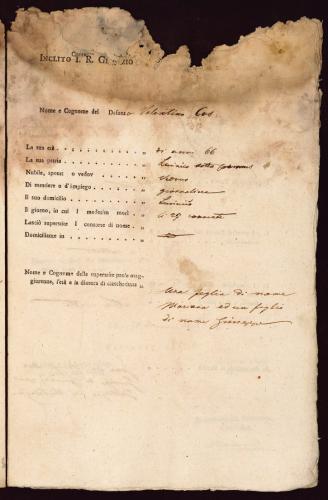 INCLITO I. R. GIUDIZIO
Nome e Cognome del Defunto Valentino Cos.
La sua età „ di anni 66
La sua patria „ Lucinico sotto
Nubile, sposato o vedovo „
Di mestiere o d'impiego „ giornaliere
Il suo domicilio „ Lucinico
Il giorno, in cui
Lasciò superstite consorte di nome „
Domiciliante in „
Nome e Cognome della superstite prole mag-
giorenne, l'età e la dimora di ciascheduno „
Una figlia di nome
Mariana ed un figlio
di nome Giuseppe